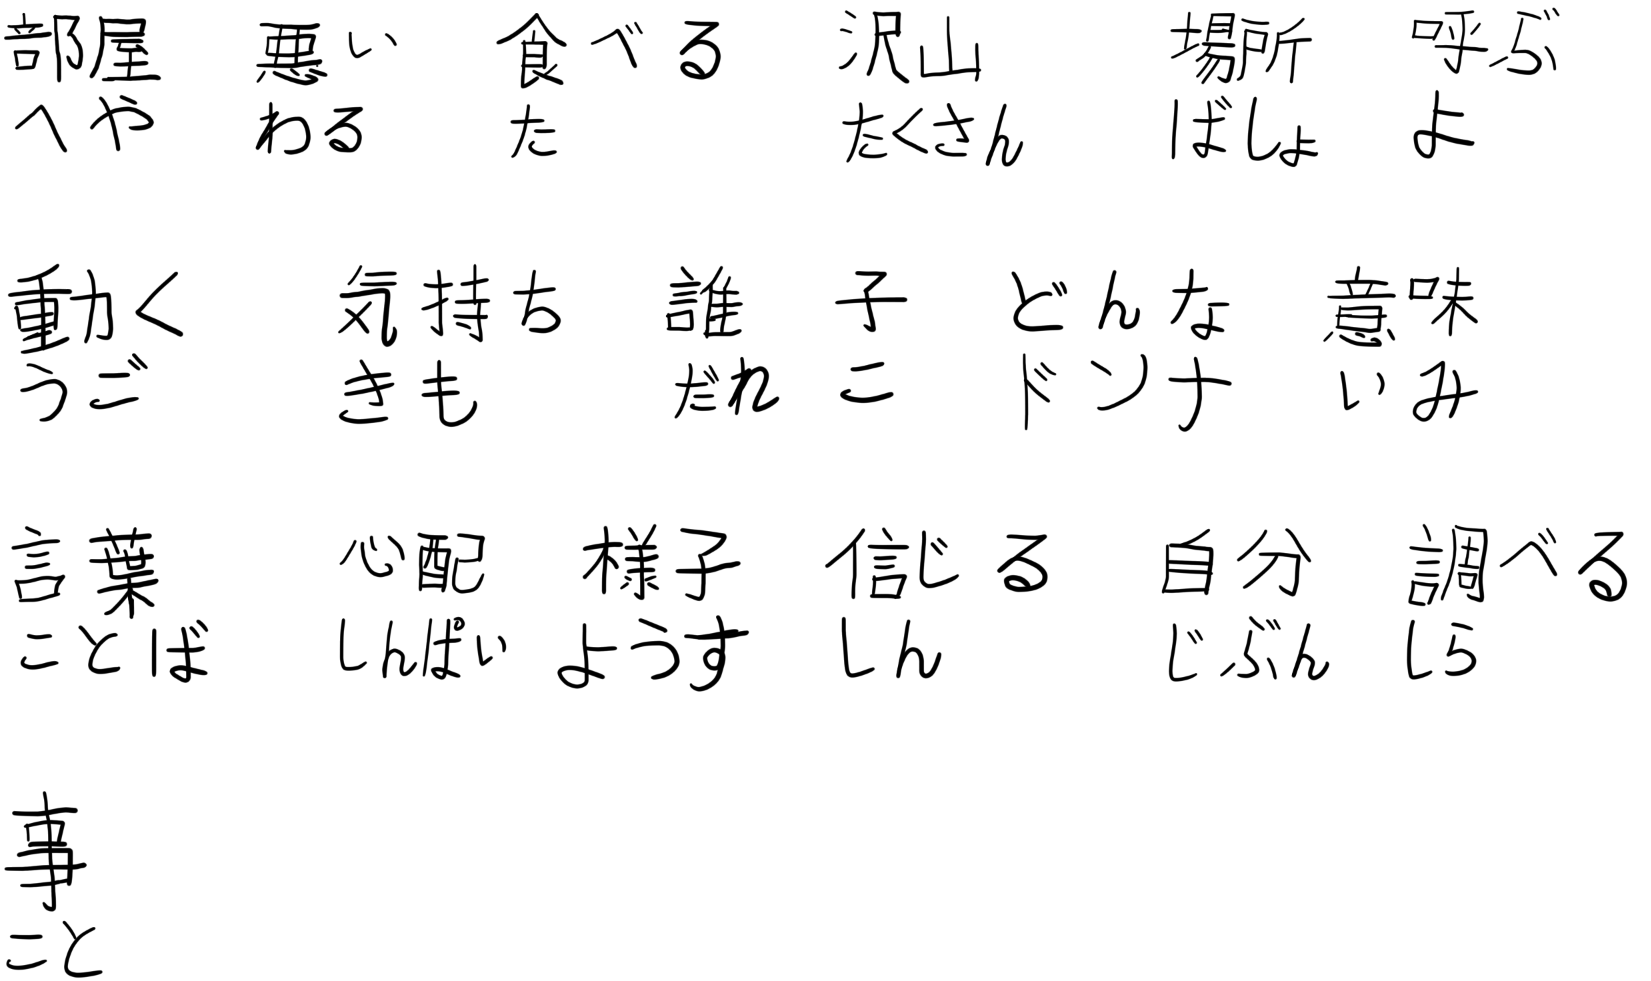 部屋 悪い 食べる 沢山 場所 呼ぶ
へや わる た たくさん ばしょ よ
動く 気持ち 誰 子 どんな 意味
うご きも だれ こ ドンナ いみ
言葉 心配 様子 信じる 自分 調べる
ことば しんぱい ようす しん じぶん しら
事
こと